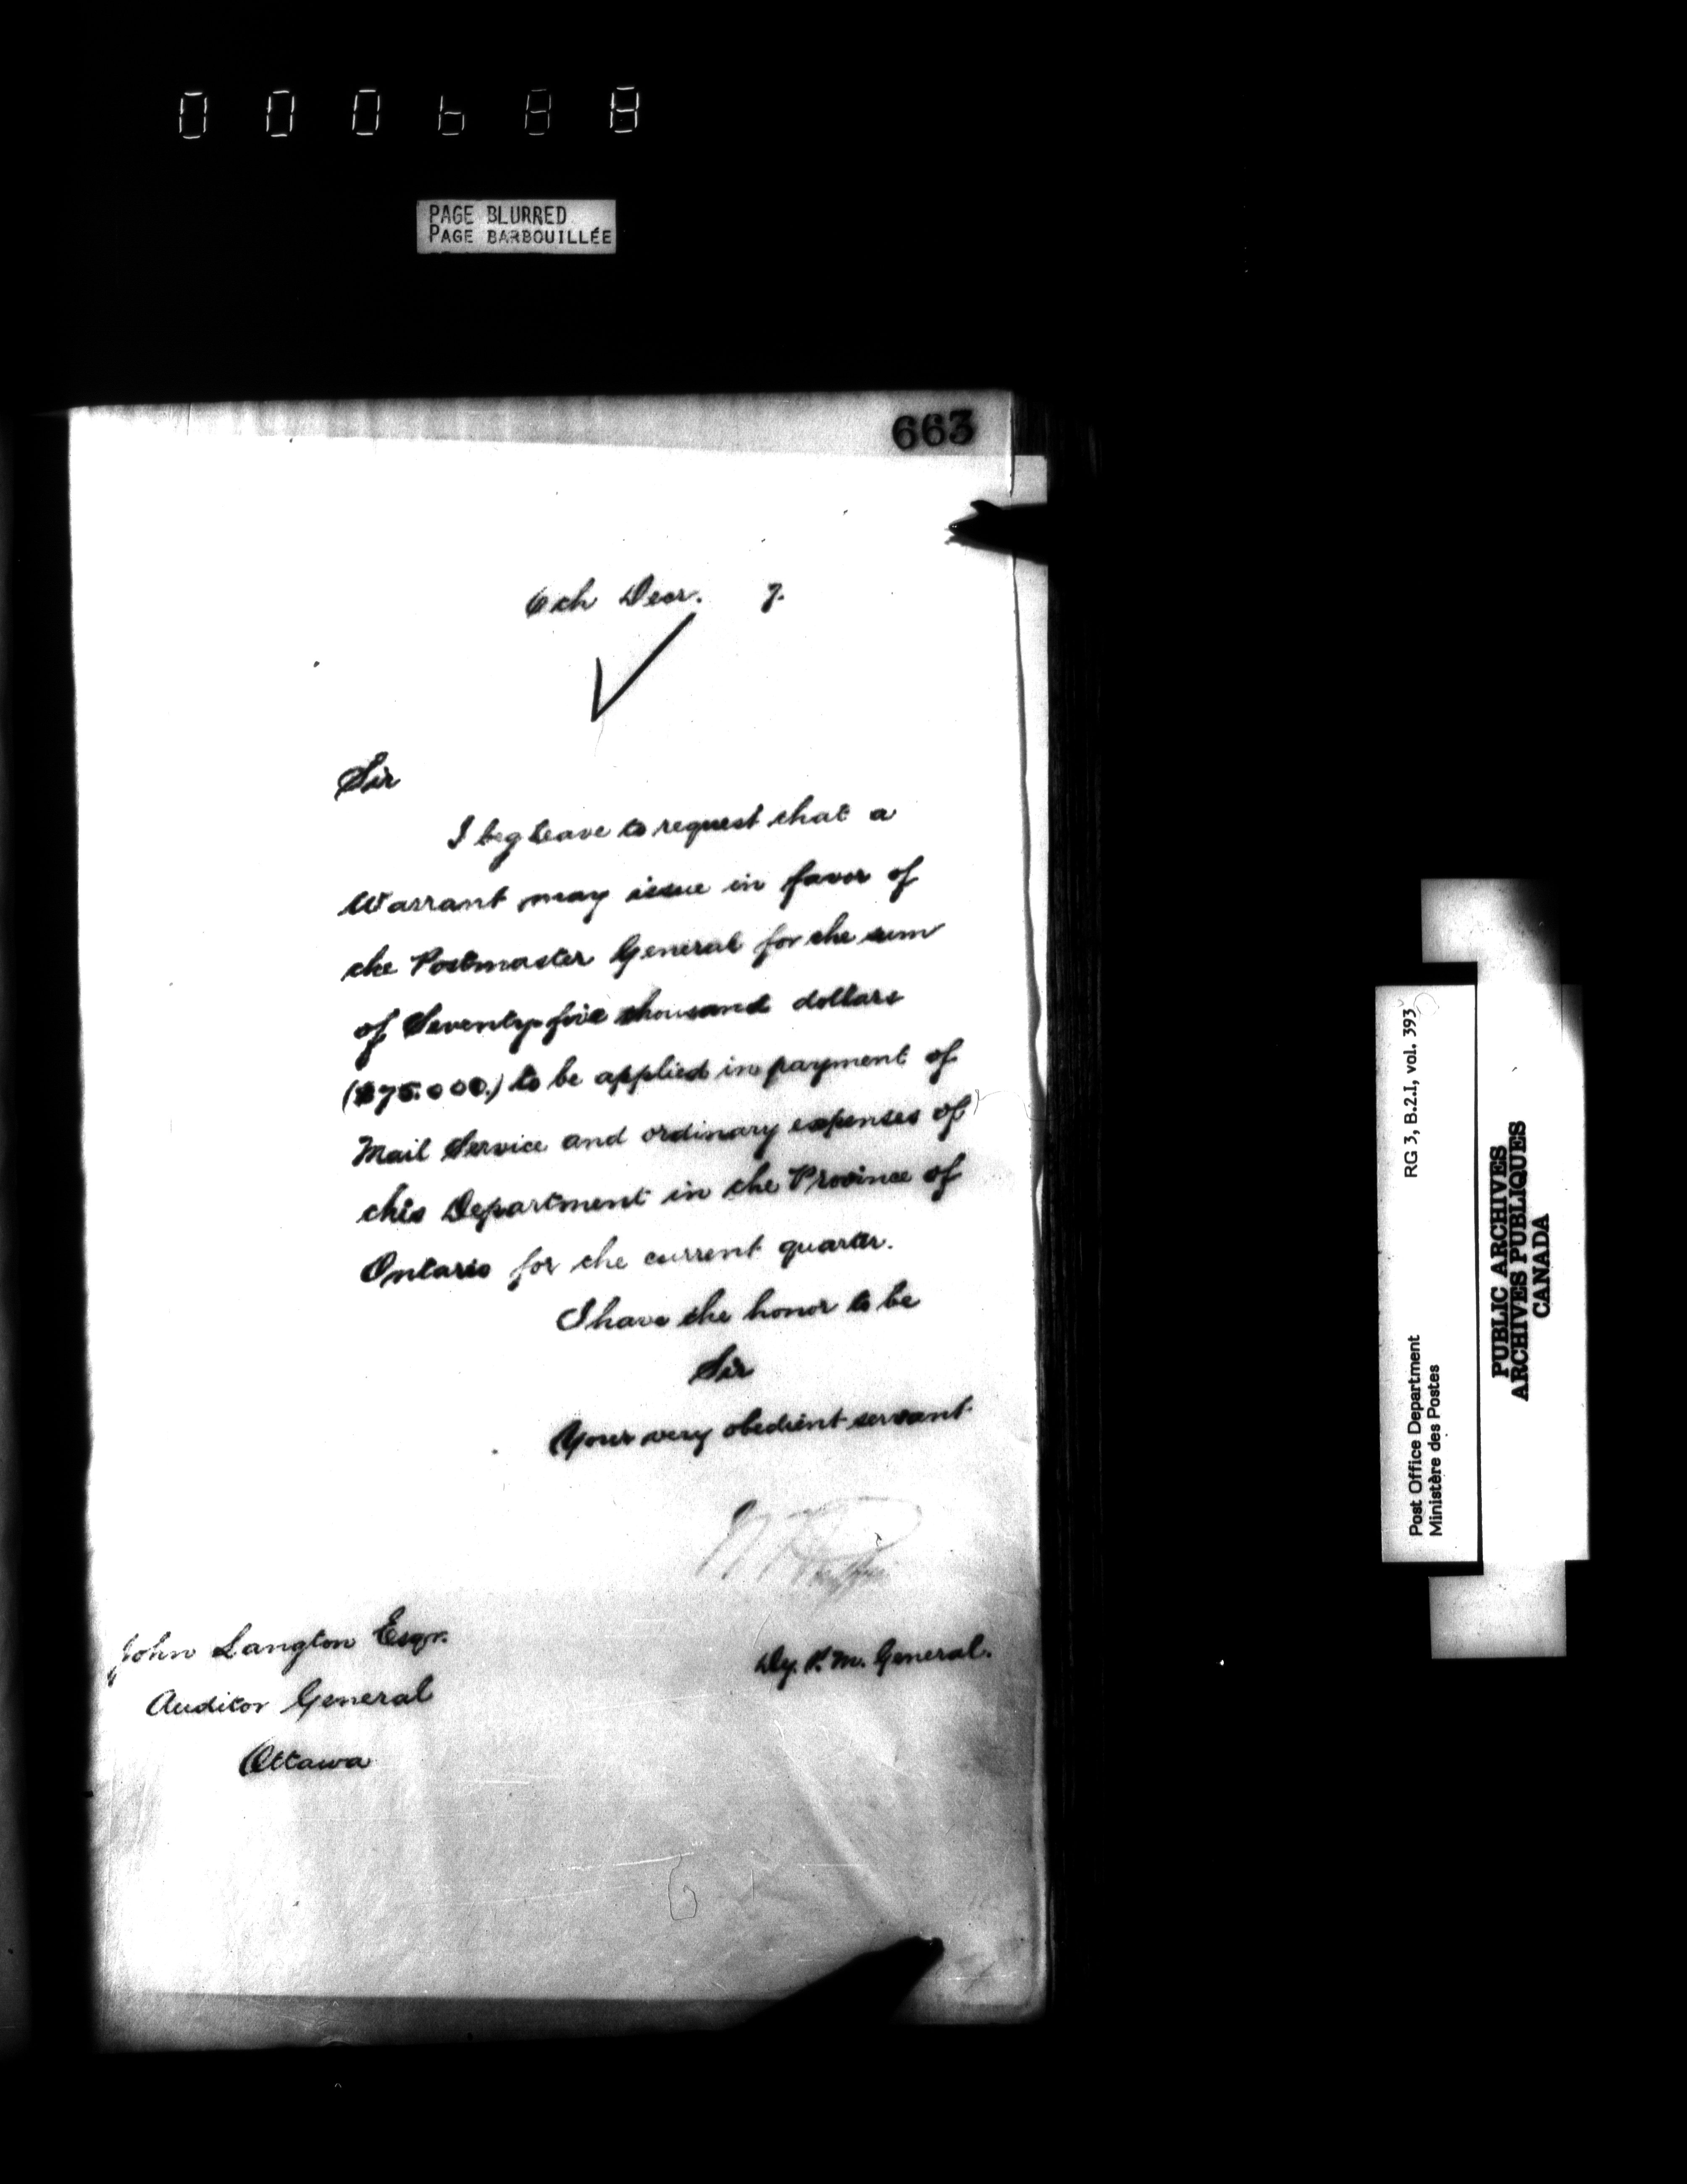 000688
PAGE BLURRED
PAGE BARBOUILLÉE
663
6th Decr. 7.
Sir
I beg leave to request that a
Warrant may issue in favor of
the Postmaster General for the sum
of Seventy five thousand dollars
($75.000.) to be applied in payment of
Mail Service and ordinary expenses of
this Department in the Province of
Ontario for the current quarter.
I have the honor to be
Sir
Your very obedient servant
Dy. P. M. General.
John Langton Esqr.
Auditor General
Ottawa
Post Office Department
Ministère des Postes
RG 3, B.2.1, vol. 393
PUBLIC ARCHIVES
ARCHIVES PUBLIQUES
CANADA